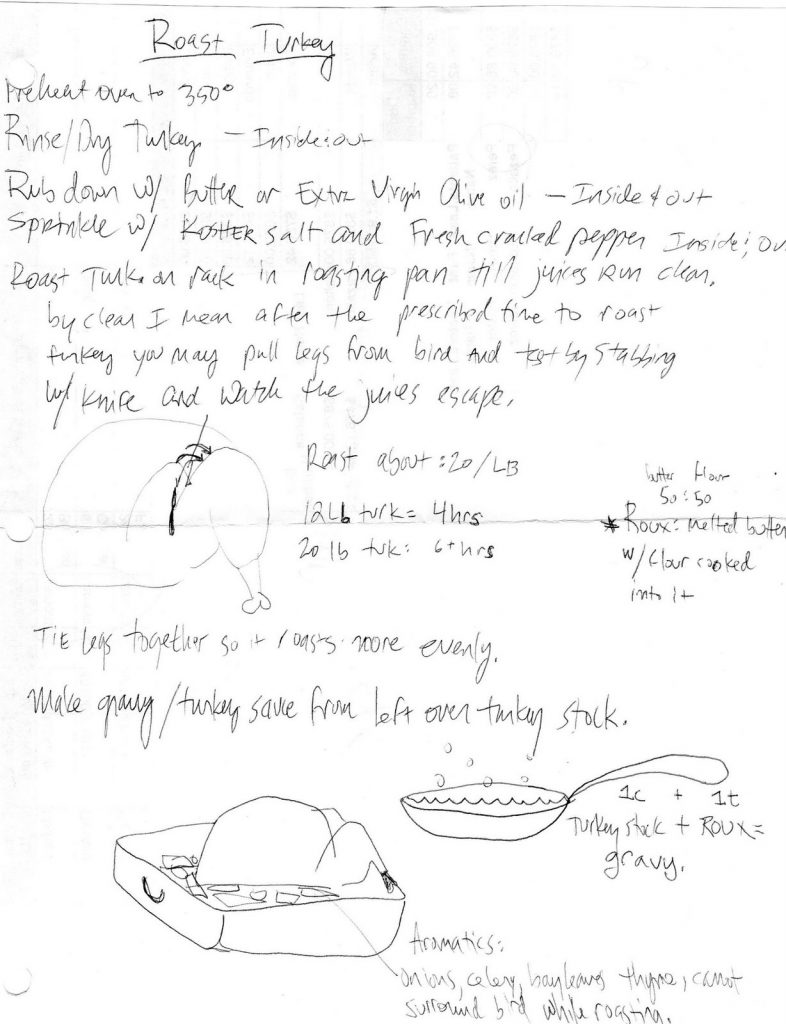 Roast Turkey
Preheat oven to 350°
Rinse/Dry Turkey - Inside & out
Rub down w/ Butter or Extra Virgin Olive oil - Inside & out
Sprinkle w/ KOSHER salt and Fresh cracked pepper Inside & ou
Roast Turk. on rack in roasting pan till juices Run clear.
by clear I mean after the prescribed time to roast
turkey you may pull legs from bird And test by Stabbing
w/ knife and watch the juices escape.
Roast about :20/LB
12Lb turk = 4hrs
20 lb tuk: 6+ hrs
butter flour
50:50
* Roux: Melted butter
w/ flour cooked
into it
TIE legs together so it roasts more evenly.
Make gravy/turkey sauce from left over turkey stock.
1c + 1t
Turkey stock + Roux =
gravy.
Aromatics:
onions, celery, bayleaves thyme, carrot
surround bird while roasting.